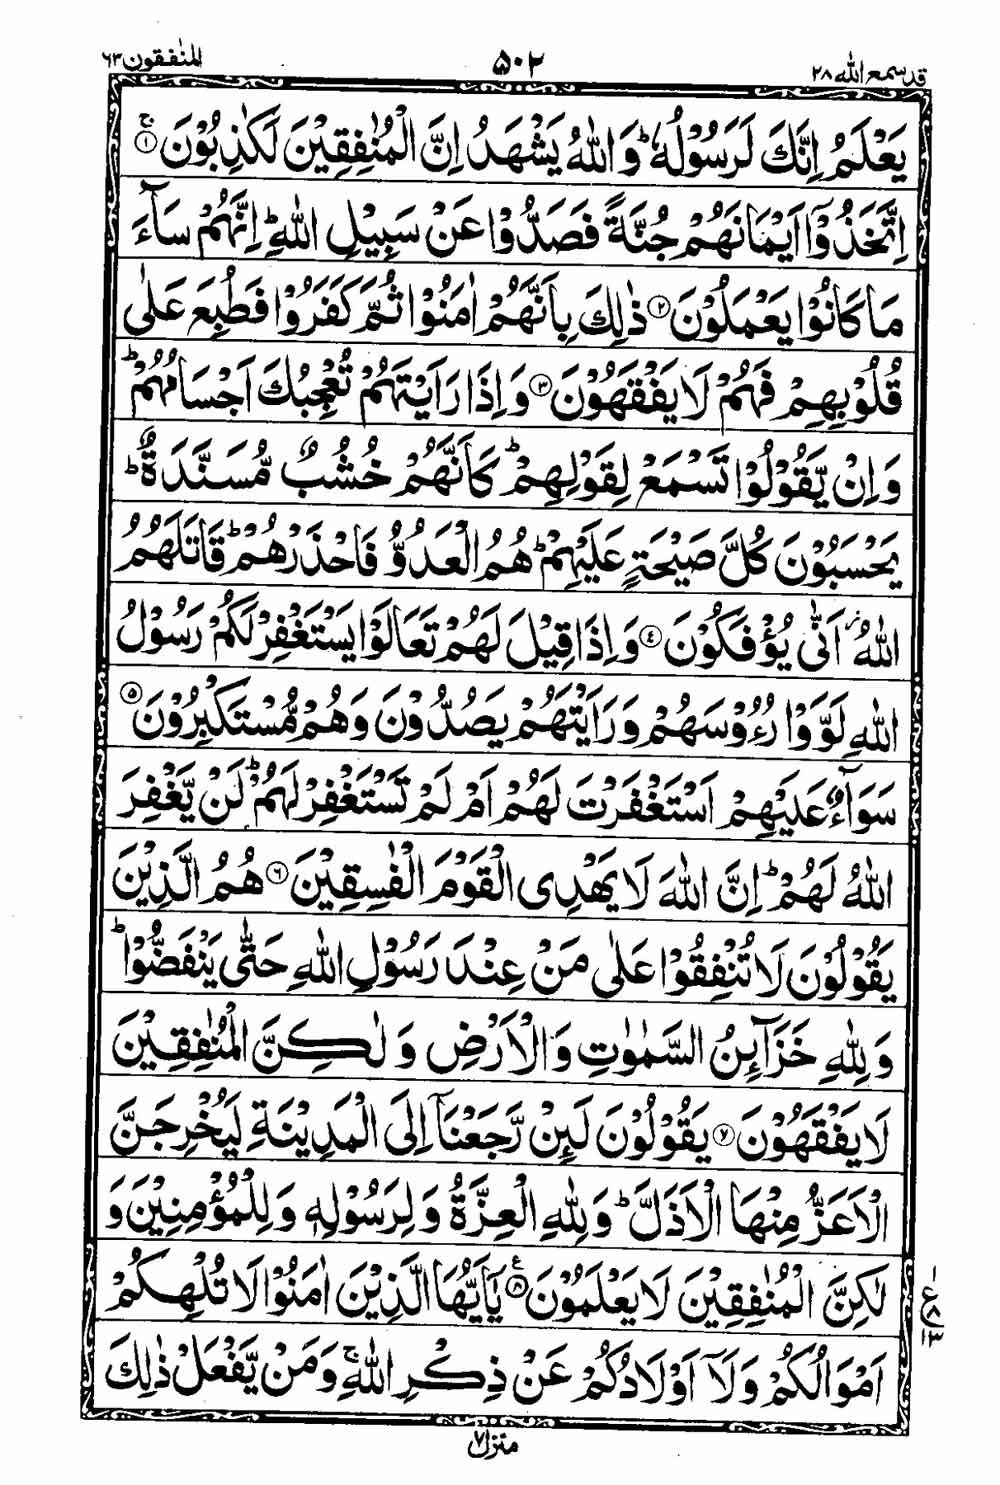 قد سمع الله ٢٨
٥٠٢
المنٰفقون ٦٣
يَعْلَمُ اِنَّكَ لَرَسُوْلُهٗ ؕ وَاللّٰهُ يَشْهَدُ اِنَّ الْمُنٰفِقِيْنَ لَكٰذِبُوْنَ ۚ ۝١
اِتَّخَذُوْۤا اَيْمَانَهُمْ جُنَّةً فَصَدُّوْا عَنْ سَبِيْلِ اللّٰهِ ؕ اِنَّهُمْ سَآءَ
مَا كَانُوْا يَعْمَلُوْنَ ۝٢ ذٰلِكَ بِاَنَّهُمْ اٰمَنُوْا ثُمَّ كَفَرُوْا فَطُبِعَ عَلٰى
قُلُوْبِهِمْ فَهُمْ لَا يَفْقَهُوْنَ ۝٣ وَاِذَا رَاَيْتَهُمْ تُعْجِبُكَ اَجْسَامُهُمْ ؕ
وَاِنْ يَّقُوْلُوْا تَسْمَعْ لِقَوْلِهِمْ ؕ كَاَنَّهُمْ خُشُبٌ مُّسَنَّدَةٌ ؕ
يَحْسَبُوْنَ كُلَّ صَيْحَةٍ عَلَيْهِمْ ؕ هُمُ الْعَدُوُّ فَاحْذَرْهُمْ ؕ قَاتَلَهُمُ
اللّٰهُ ؗ اَنّٰى يُؤْفَكُوْنَ ۝٤ وَاِذَا قِيْلَ لَهُمْ تَعَالَوْا يَسْتَغْفِرْ لَكُمْ رَسُوْلُ
اللّٰهِ لَوَّوْا رُءُوْسَهُمْ وَرَاَيْتَهُمْ يَصُدُّوْنَ وَهُمْ مُّسْتَكْبِرُوْنَ ۝٥
سَوَآءٌ عَلَيْهِمْ اَسْتَغْفَرْتَ لَهُمْ اَمْ لَمْ تَسْتَغْفِرْ لَهُمْ ؕ لَنْ يَّغْفِرَ
اللّٰهُ لَهُمْ ؕ اِنَّ اللّٰهَ لَا يَهْدِى الْقَوْمَ الْفٰسِقِيْنَ ۝٦ هُمُ الَّذِيْنَ
يَقُوْلُوْنَ لَا تُنْفِقُوْا عَلٰى مَنْ عِنْدَ رَسُوْلِ اللّٰهِ حَتّٰى يَنْفَضُّوْا ؕ
وَلِلّٰهِ خَزَآئِنُ السَّمٰوٰتِ وَالْاَرْضِ وَلٰكِنَّ الْمُنٰفِقِيْنَ
لَا يَفْقَهُوْنَ ۝٧ يَقُوْلُوْنَ لَئِنْ رَّجَعْنَاۤ اِلَى الْمَدِيْنَةِ لَيُخْرِجَنَّ
الْاَعَزُّ مِنْهَا الْاَذَلَّ ؕ وَلِلّٰهِ الْعِزَّةُ وَلِرَسُوْلِهٖ وَلِلْمُؤْمِنِيْنَ وَ
لٰكِنَّ الْمُنٰفِقِيْنَ لَا يَعْلَمُوْنَ ۝٨ يٰۤاَيُّهَا الَّذِيْنَ اٰمَنُوْا لَا تُلْهِكُمْ
اَمْوَالُكُمْ وَلَاۤ اَوْلَادُكُمْ عَنْ ذِكْرِ اللّٰهِ ۚ وَمَنْ يَّفْعَلْ ذٰلِكَ
منزل ٧